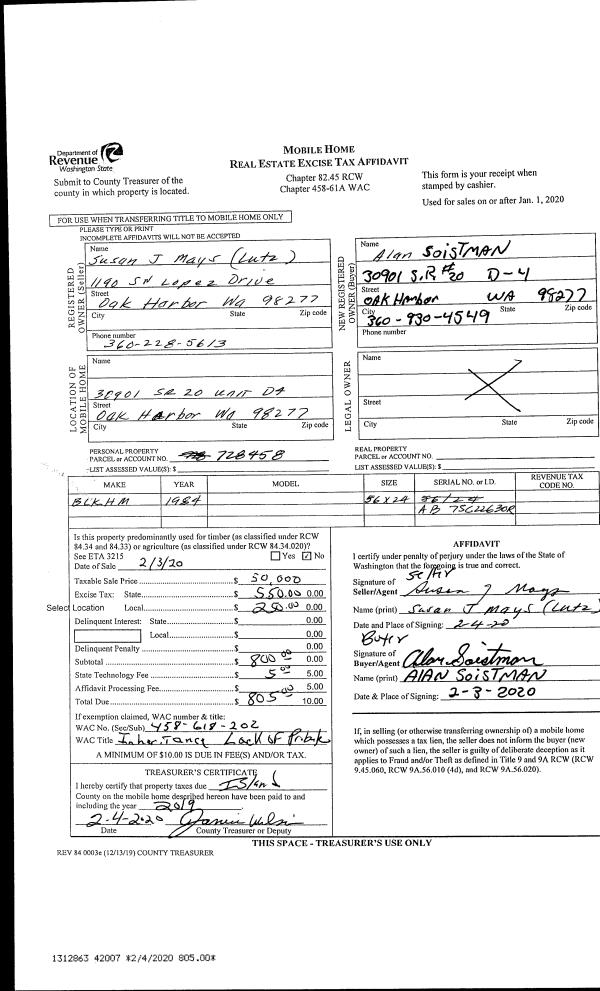 Department of
Revenue
Washington State
MOBILE HOME
REAL ESTATE EXCISE TAX AFFIDAVIT
Submit to County Treasurer of the
county in which property is located.
Chapter 82.45 RCW
Chapter 458-61A WAC
This form is your receipt when
stamped by cashier.
Used for sales on or after Jan. 1, 2020
FOR USE WHEN TRANSFERRING TITLE TO MOBILE HOME ONLY
PLEASE TYPE OR PRINT
INCOMPLETE AFFIDAVITS WILL NOT BE ACCEPTED
REGISTERED
OWNER (Seller)
Name
Susan J Mays (Lutz)
1190 SW Lopez Drive
Street
Oak Harbor Wa 98277
City State Zip code
Phone number
360-228-5613
NEW REGISTERED
OWNER (Buyer)
Name
Alan SOISTMAN
30901 S.R #20 D-4
Street
OAK Harbor WA 98277
City State Zip code
360-930-4549
Phone number
LOCATION OF
MOBILE HOME
Name
30901 SR 20 UNIT D4
Street
Oak Harbor Wa 98277
City State Zip code
LEGAL OWNER
Name
Street
City State Zip code
PERSONAL PROPERTY
PARCEL or ACCOUNT NO. 728458
LIST ASSESSED VALUE(S): $
REAL PROPERTY
PARCEL or ACCOUNT NO.
LIST ASSESSED VALUE(S): $
MAKE YEAR MODEL SIZE SERIAL NO. or I.D. REVENUE TAX CODE NO.
BLKHM 1984 56 x 24 56/24
AB 7SC2263OR
Is this property predominantly used for timber (as classified under RCW
84.34 and 84.33) or agriculture (as classified under RCW 84.34.020)?
See ETA 3215 Yes No
Date of Sale 2/3/20
Taxable Sale Price $ 50,000
Excise Tax: State $ 550.00 0.00
Select Location Local $ 250.00 0.00
Delinquent Interest: State $ 0.00
Local $ 0.00
Delinquent Penalty $ 0.00
Subtotal $ 800.00 0.00
State Technology Fee $ 5.00 5.00
Affidavit Processing Fee $ 5.00
Total Due $ 805.00 10.00
If exemption claimed, WAC number & title:
WAC No. (Sec/Sub) 458-618-202
WAC Title Inheritance Lack of Probate
A MINIMUM OF $10.00 IS DUE IN FEE(S) AND/OR TAX.
TREASURER'S CERTIFICATE
I hereby certify that property taxes due Island
County on the mobile home described hereon have been paid to and
including the year 2019
2-4-2020
Date County Treasurer or Deputy
AFFIDAVIT
I certify under penalty of perjury under the laws of the State of
Washington that the foregoing is true and correct.
Signature of
Seller/Agent Susan J Mays
Name (print) Susan J Mays (Lutz)
Date and Place of Signing: 2-4-20
Buyer
Signature of
Buyer/Agent Alan Soistman
Name (print) AlAN SOISTMAN
Date & Place of Signing: 2-3-2020
If, in selling (or otherwise transferring ownership of) a mobile home
which possesses a tax lien, the seller does not inform the buyer (new
owner) of such a lien, the seller is guilty of deliberate deception as it
applies to Fraud and/or Theft as defined in Title 9 and 9A RCW (RCW
9.45.060, RCW 9A.56.010 (4d), and RCW 9A.56.020).
THIS SPACE - TREASURER'S USE ONLY
REV 84 0003e (12/13/19) COUNTY TREASURER
1312863 42007 *2/4/2020 805.00*